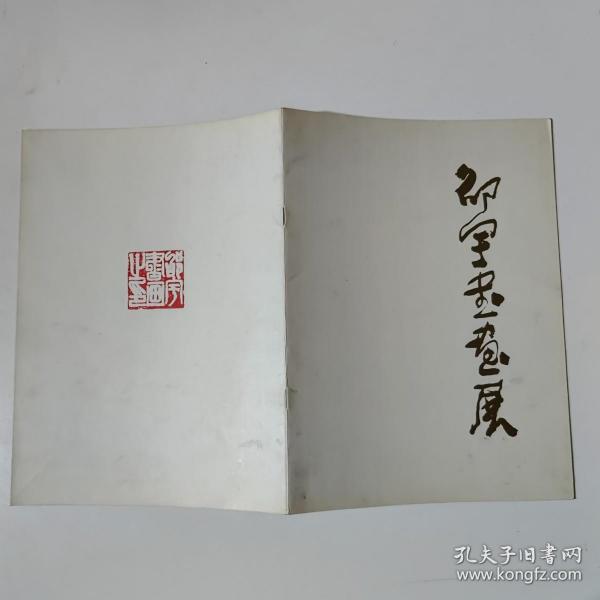 邵宇书画展
邵宇
书画
之印
孔夫子旧书网
www.kongfz.com